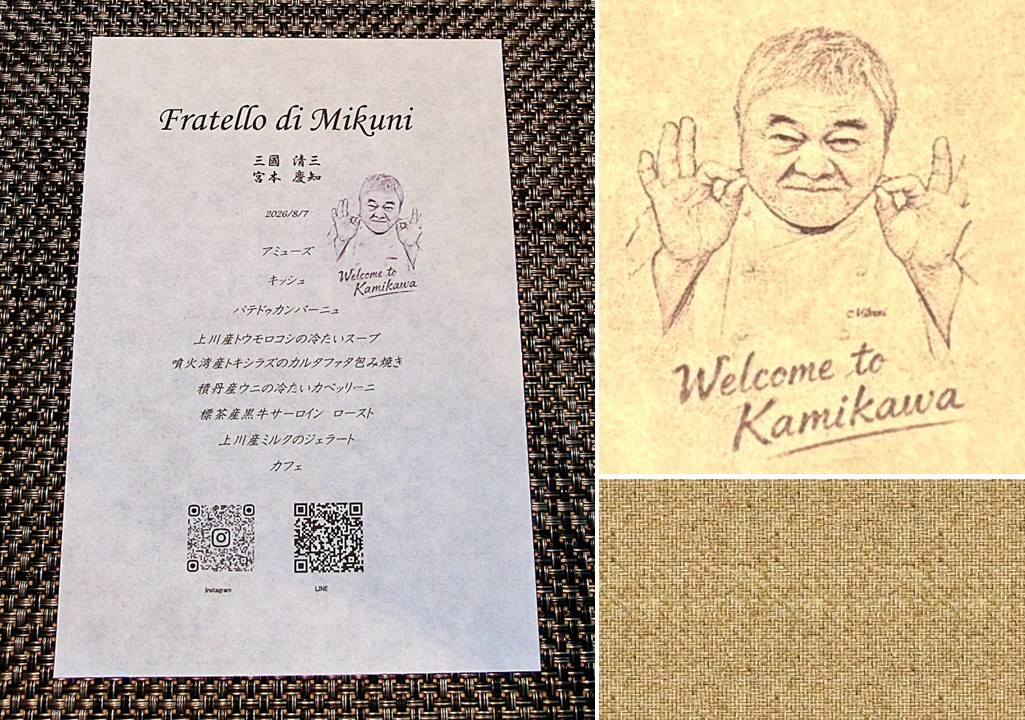 Fratello di Mikuni
三國 清三
宮本 慶知
2026/8/7
アミューズ
キッシュ
パテドゥカンパーニュ
上川産トウモロコシの冷たいスープ
噴火湾産トキシラズのカルタファタ包み焼き
積丹産ウニの冷たいカペッリーニ
標茶産黒牛サーロイン ロースト
上川産ミルクのジェラート
カフェ
Welcome to
Kamikawa
Instagram
LINE
Mikuni
Welcome to
Kamikawa